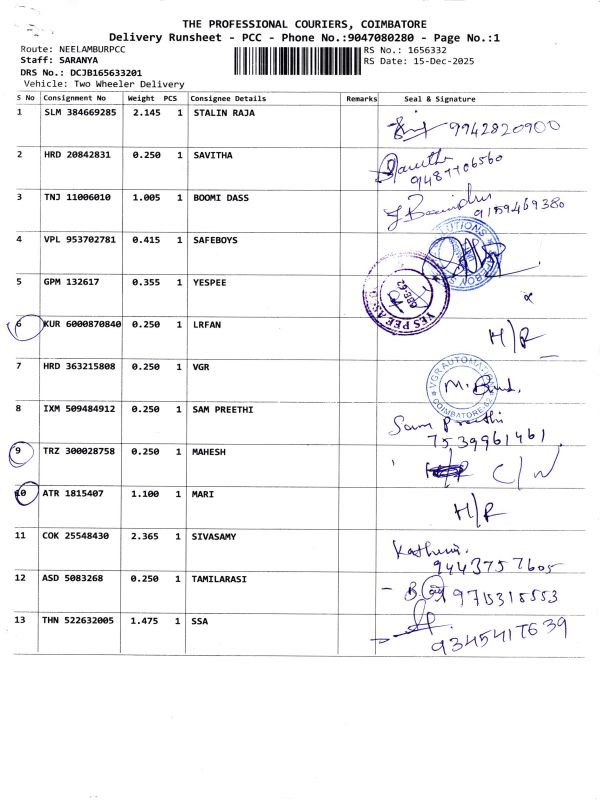 THE PROFESSIONAL COURIERS, COIMBATORE
Delivery Runsheet - PCC - Phone No.:9047080280 - Page No.:1
Route: NEELAMBURPCC RS No.: 1656332
Staff: SARANYA RS Date: 15-Dec-2025
DRS No.: DCJB165633201
Vehicle: Two Wheeler Delivery
S No Consignment No Weight PCS Consignee Details Remarks Seal & Signature
1 SLM 384669285 2.145 1 STALIN RAJA 9942820900
2 HRD 20842831 0.250 1 SAVITHA Savitha
9487706560
3 TNJ 11006010 1.005 1 BOOMI DASS 9159469380
4 VPL 953702781 0.415 1 SAFEBOYS
5 GPM 132617 0.355 1 YESPEE YES PEE
6 KUR 6000870840 0.250 1 LRFAN H/R
7 HRD 363215808 0.250 1 VGR VGR AUTOMATION COIMBATORE-62
8 IXM 509484912 0.250 1 SAM PREETHI Sam Preethi
7539961461
9 TRZ 300028758 0.250 1 MAHESH C/N
10 ATR 1815407 1.100 1 MARI H/R
11 COK 25548430 2.365 1 SIVASAMY
9443757605
12 ASD 5083268 0.250 1 TAMILARASI 9715315553
13 THN 522632005 1.475 1 SSA 9345417639